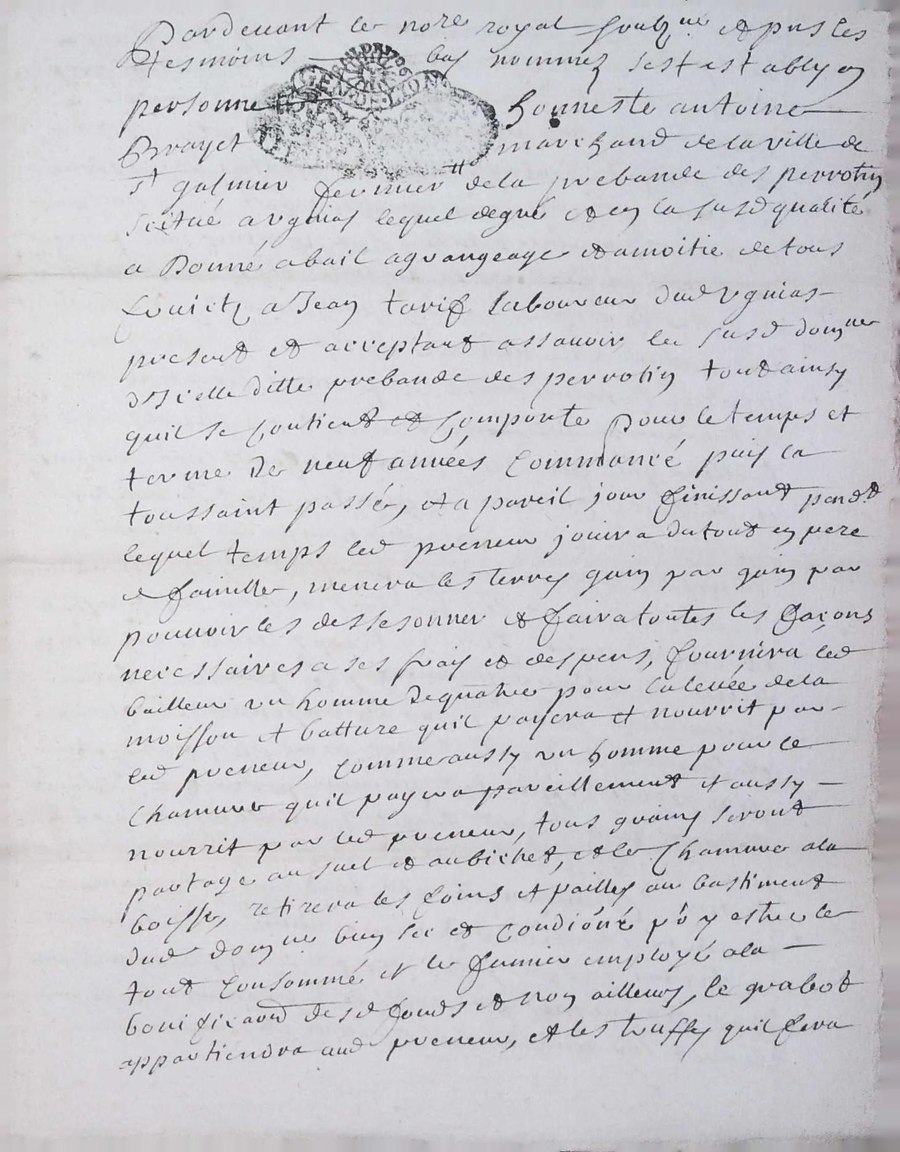 Pardevant le no.re royal soubz.ne et puis les
tesmoins bas nommez s'est estably en
personne honneste antoine
Brayet marchand de la ville de
st galmier fermier de la prebande des perrotin
scitué a vgnias lequel de gré et en la susd qualité
a Donné a bail a grangeage et a moitie de tous
fruictz a Jean tarif laboureur dud vgnias
present et acceptant assavoir le susd dom.ne
d'Icelle ditte prebande des perrotin tout ainsy
quil se contient et Comporte pour le temps et
terme de neuf années Commancé puis la
toussaint passée, et a pareil jour finissant pend.t
lequel temps led preneur jouira du tout en pere
de famille, menera les terres gain par gain par
pouvoir les dessesonner et faira toutes les façons
necessaires a ses frais et despens, fournira led
bailleur un homme pour la levée de la
moisson et batture quil payera et nourrit par
led preneur, comme aussy un homme pour le
Chamure quil payera pareillement et aussy
nourrit par led preneur, tous grains seront
partage au suel et au bichet, et le Chamure a la
boisse, retirera les foins et pailles au bastiment
dud dom.ne bien sec et condi.oné p.r y estre le
tout consommé et le fumier employé a la
bonificaon desd fonds et non ailleurs, le grabot
appartiendra aud preneur, et les truffes quil fera
GEN DE LYON